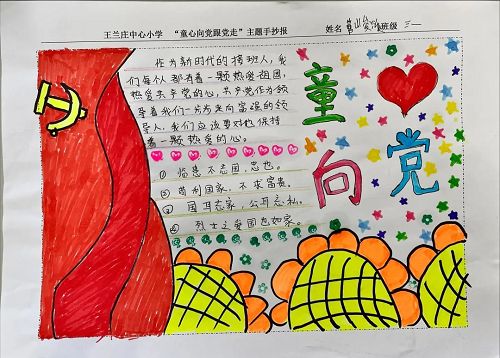 王兰庄中心小学 “童心向党跟党走”主题手抄报 姓名 班级 三一
作为新时代的接班人，我
们每个人都有着一颗热爱祖国，
热爱共产党的心，共产党作为领
导着我们一步步走向富强的领
导人，我们应该要对他保持
着一颗热爱的心。
① 临患不忘国，忠也。
② 苟利国家，不求富贵。
③ 国耳忘家，公耳忘私。
④ 烈士之爱国也如家。
童心向党